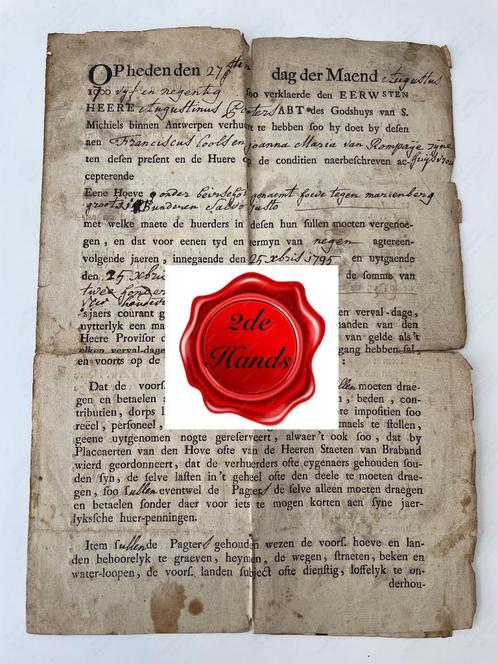 OP heden den 27 sten dag der Maend Augustus
1700 vyf en negentig soo verklaerde den EERWSTEN
HEERE Augustinus Pooters ABT des Godshuys van S.
Michiels binnen Antwerpen verhuert te hebben soo hy doet by desen
aen Franciscus Cools en Joanna Maria van Rompaye syne
huysvrou
ten desen present en de Huere op de conditien naerbeschreven ac-
cepterende
Eene Hoeve onder beirschot genaemt tegen marienberg
groot Bunderen salvo justo
met welke maete de huerders in desen hun sullen moeten vergenoe-
gen, en dat voor eenen tyd en termyn van negen agtereen-
volgende jaeren, innegaende den 25 xbris 1795 en uytgaende
den 25 xbris de somme van
twee honderd
'sjaers courant g verval-dage,
uytterlyk een ma handen van den
Heere Provisor d van gelde als't
elken verval-dag gang hebben sal,
en voorts op de
Dat de voors. sullen moeten drae-
gen en betaelen a , beden, con-
tributien, dorps l ere impositien soo
reëel, personeel, maels te stellen,
geene uytgenomen nogte gereserveert, alwaer't ook soo, dat by
Placcaerten van den Hove ofte van de Heeren Staeten van Braband
wierd geordonneert, dat de verhuerders ofte eygenaers gehouden sou-
den syn, de selve lasten in't geheel ofte den deele te moeten drae-
gen, soo sullen eventwel de Pagters de selve alleen moeten draegen
en betaelen sonder daer voor iets te mogen korten aen syne jaer-
lyksche huer-penningen.
Item sullen de Pagters gehouden wezen de voors. hoeve en lan-
den behoorelyk te graeven, heymen, de wegen, straeten, beken en
water-loopen, de voors. landen subject ofte dienstig, loffelyk te on-
derhou-
2de
Hands